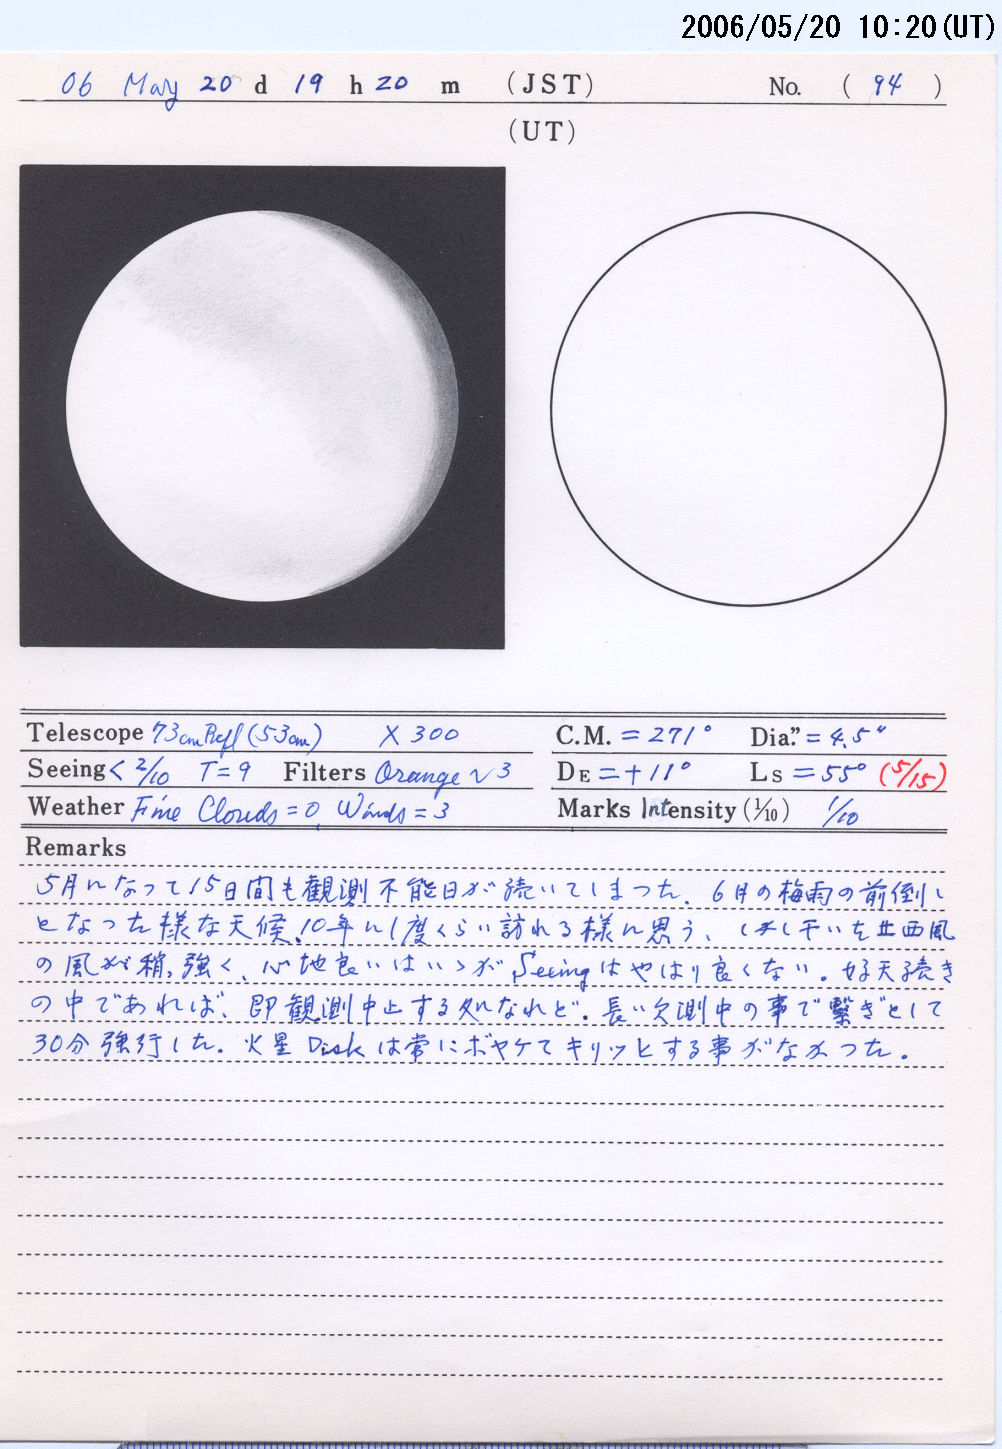 2006/05/20 10:20(UT)
06 May 20 d 19 h 20 m (JST) No. ( 94 )
(UT)
Telescope 73cm Refl (53cm) × 300 C.M. = 271° Dia." = 4.5"
Seeing < 2/10 T=9 Filters Orange √3 DE = +11° LS = 55° (5/15)
Weather Fine Clouds = 0, Winds = 3 Marks Intensity (1/10) 1/10
Remarks
5月になって15日間も観測不能日が続いてしまった. 6月の梅雨の前倒し
となった様な天候. 10年に1度くらい訪れる様に思う、しかし干いた北西風
の風が稍々強く、心地良いはいゝがSeeingはやはり良くない。好天続き
の中であれば、即観測中止する処なれど. 長い欠測中の事で繋ぎとして
30分強行した. 火星Diskは常にボヤケてキリッとする事がなかった.